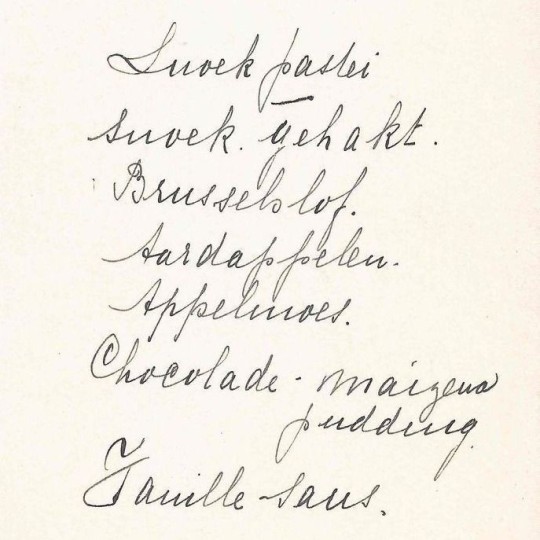 Snoek pastei
snoek. gehakt.
Brusselslof.
Aardappelen.
Appelmoes.
Chocolade - maizena
pudding
Vanille-saus.